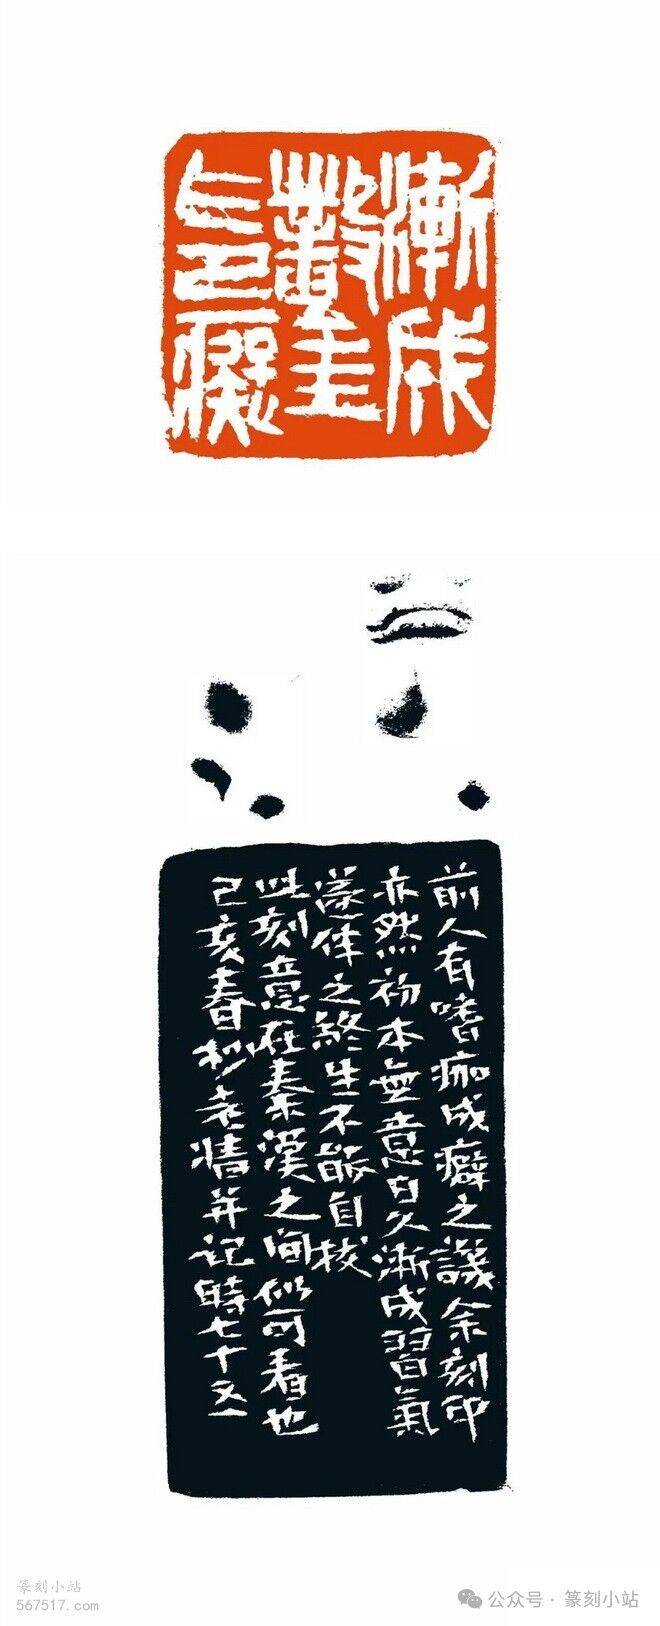 漸成
癡
前人有嗜痂成癖之議余刻印
亦然初本無意日久漸成習氣
之終生不能自拔
此刻意在秦漢之間仍可看也
己亥春杪并记時七十又一
篆刻小站
567517.com
公众号·篆刻小站